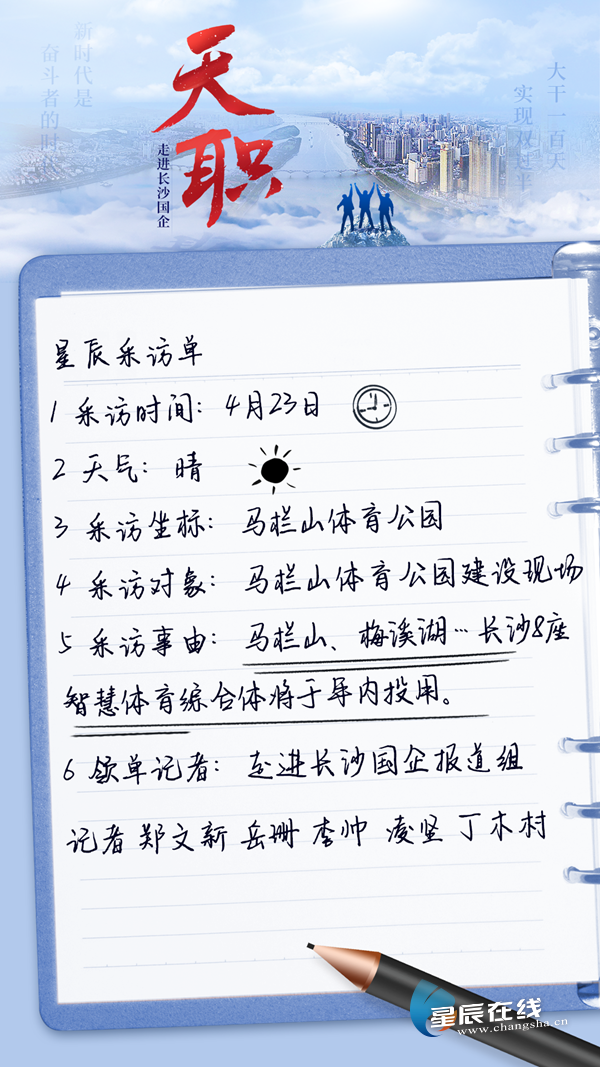 新时代是
奋斗者的时代
天职
走进长沙国企
大干一百天
实现双过半
星辰采访单
1 采访时间：4月23日
2 天气：晴
3 采访坐标：马栏山体育公园
4 采访对象：马栏山体育公园建设现场
5 采访事由：马栏山、梅溪湖…长沙8座
智慧体育综合体将于年内投用。
6 领单记者：走进长沙国企报道组
记者 郑文新 岳珊 李帅 凌坚 丁木村
星辰在线
www.changsha.cn